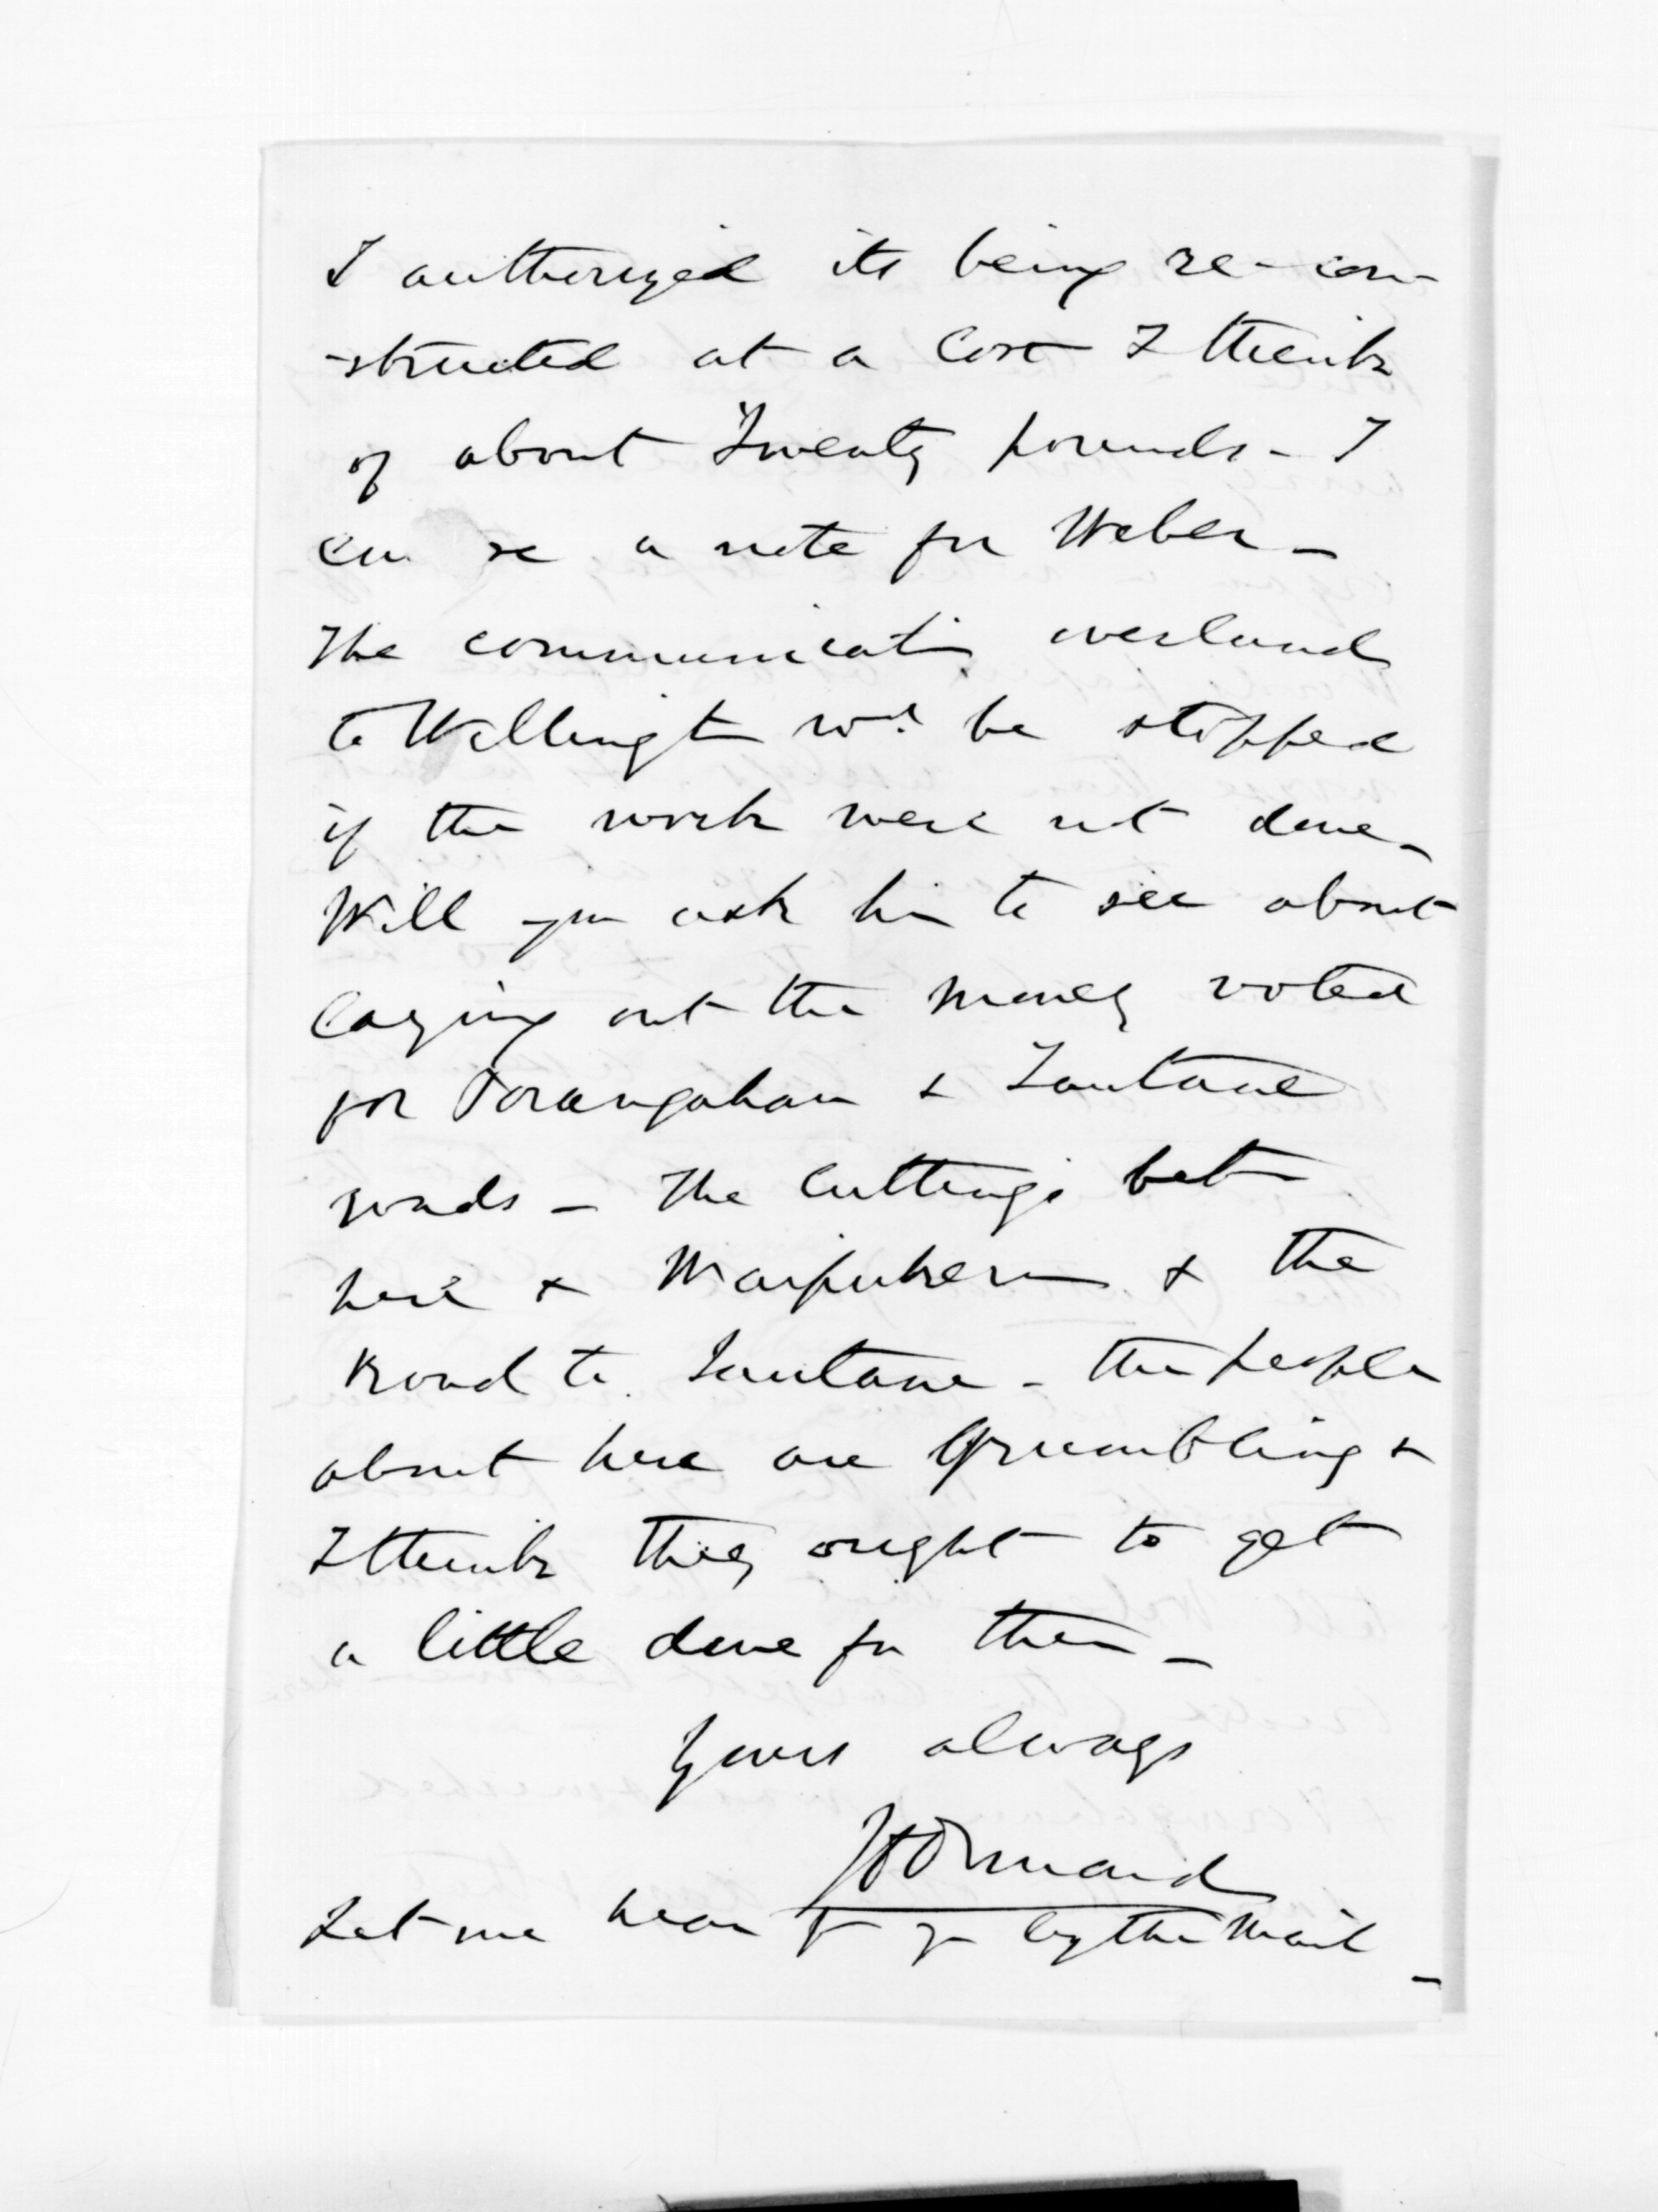 I authorized its being re-con-
-structed at a Cost I think
of about Twenty pounds - I
a note for Weber -
The communication overland
to Wellington wd. be stopped
if the work were not done -
Will you ask him to see about
laying out the money voted
for Porangahau & Tautane
roads - The Cuttings betn
here & Waipukurau & the
Road to Tautane - the people
about here are Grumbling &
I think they ought to get
a little done for them -
Yours always
JD Ormond
Let me hear fr you by the Mail -